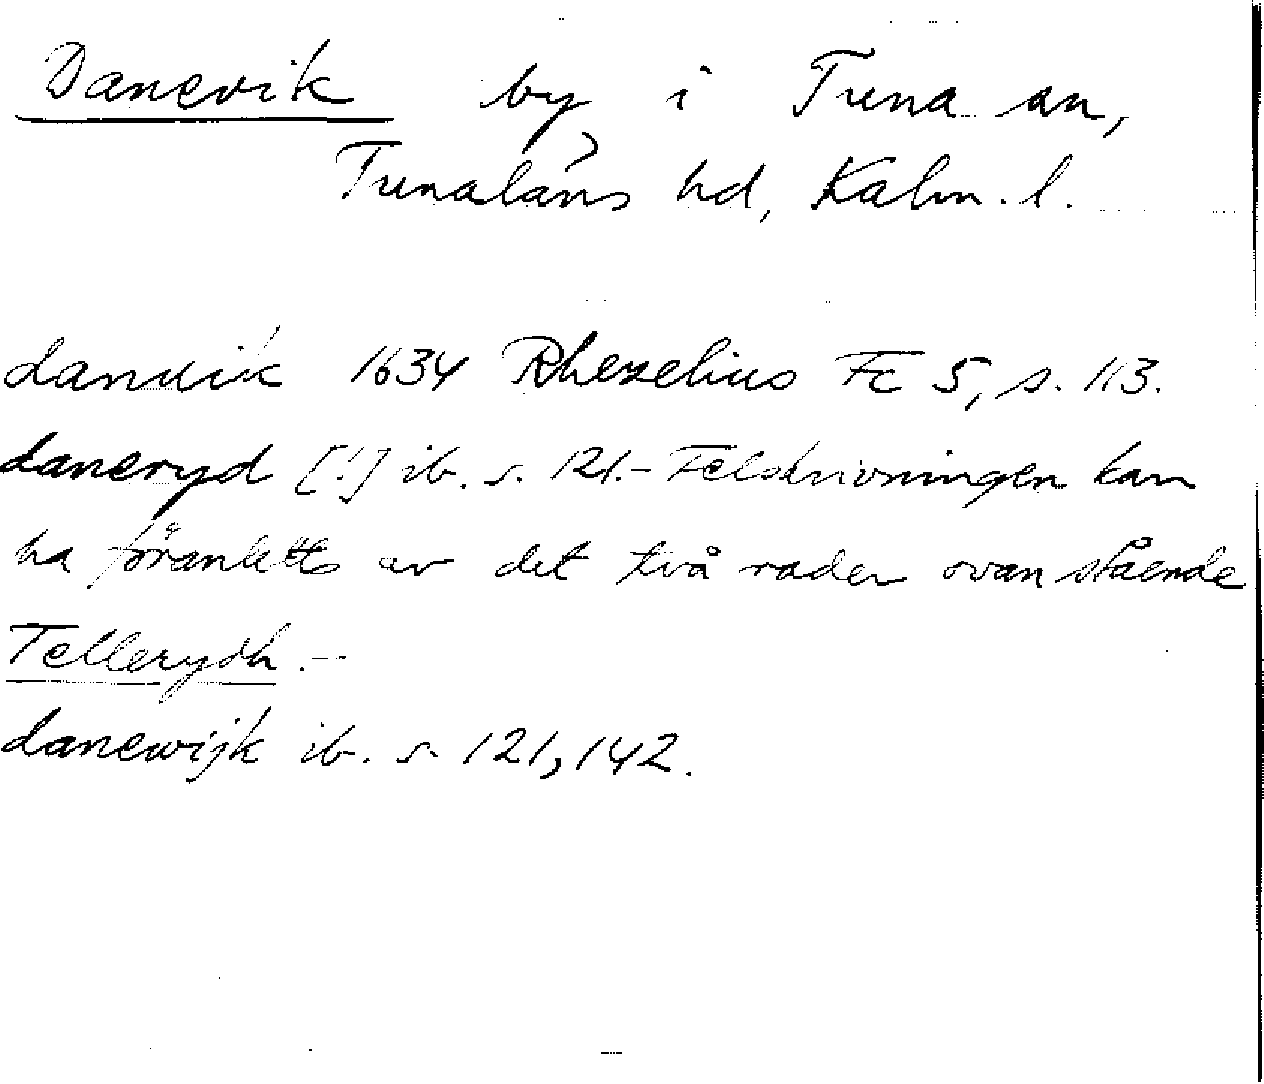 Danevik by i Tuna sn,
Tunaläns hd, Kalm. l.
danuik 1634 Rhezelius Fc 5, s. 113.
daneryd [!] ib. s. 121.- Felskrivningen kan
ha föranletts av det två rader ovan stående
Tellerydh.-
danewijk ib. s. 121, 142.